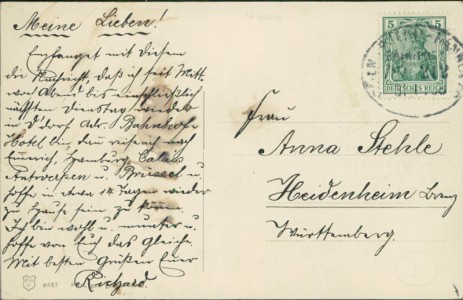 Meine Lieben!
Empfanget mit Diesem
die Nachricht, daß ich seit Mitt-
woch Abend bis einschließlich
nächsten Dienstag wieder
in D'dorf Adr. Bahnhof-
Hotel bin, dann reise ich nach
Emmerich, Hamburg, Calais
Antwerpen u. Brüssel u.
hoffe in etwa 14 Tagen wieder
zu Hause sein zu können.
Ich bin wohl u. munter u.
hoffe von Euch das Gleiche.
Mit besten Grüßen Euer
Richard.
5 5
DEUTSCHES REICH
Frau
Anna Stehle
Heidenheim Brenz
Württemberg.
9157